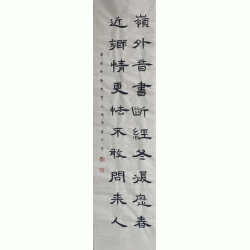 嶺外音書斷經冬復歷春
近鄉情更怯不敢問来人